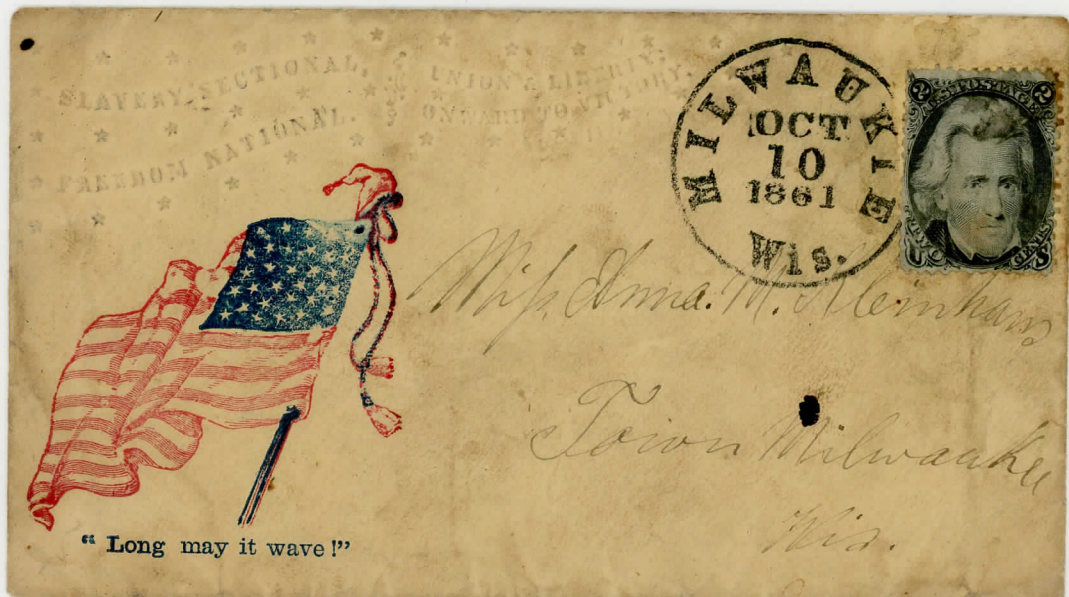 SLAVERY SECTIONAL,
FREEDOM NATIONAL.
UNION & LIBERTY,
ONWARD TO VICTORY,
MILWAUKIE
OCT
10
1861
Wis.
2 U.S. POSTAGE 2
Miss. Anna. M. Kleinhans
Town Milwaukee
Wis.
"Long may it wave!"